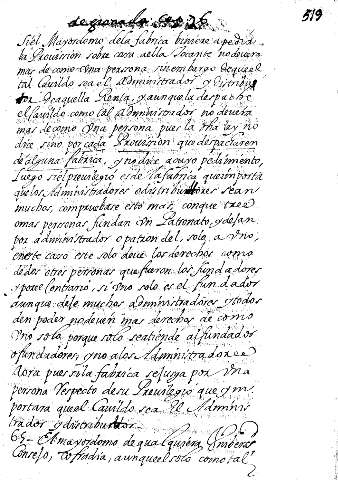 519
Si el Mayordomo de la fabrica biniere a pedir
la Provission sobre cosa della Vocante no devera
mas de como Una persona sin embargo de que el
tal Cavildo sea el Administrador y distribui
dor de aquella Renta, y aunque la despache
el Cavildo como tal administrador no devera
mas de como Una persona pues la dha ley no
dice sino por cada Provission que despacharen
de alguna fabrica, y no dice a cuyo pedimiento,
luego si el previlegio es de la fabrica que importa
que los Administradores o distribuidores sean
muchos, compruebase esto mas, con que tres
o mas personas fundan Un Patronato, y dejan
por administrador o patron del, solo a Uno,
en este caso este solo deve los derechos como
de des o tres personas que fueron los fundadores
y por el Contrario, si Uno solo es el fundador
aunque deje muchos administradores, y todos
den poder no deven mas derechos de como
Uno solo, porque solo se atiende al fundador
o fundadores, y no a los Administradores
Aora pues si la fabrica se juzga por Una
persona Respecto de su Previlegio que im
portara que el Cavildo sea el Adminis
trador y distribuidor.
65,, El mayordomo de qualquiera
Consejo, Cofradia, aunque el solo como tal